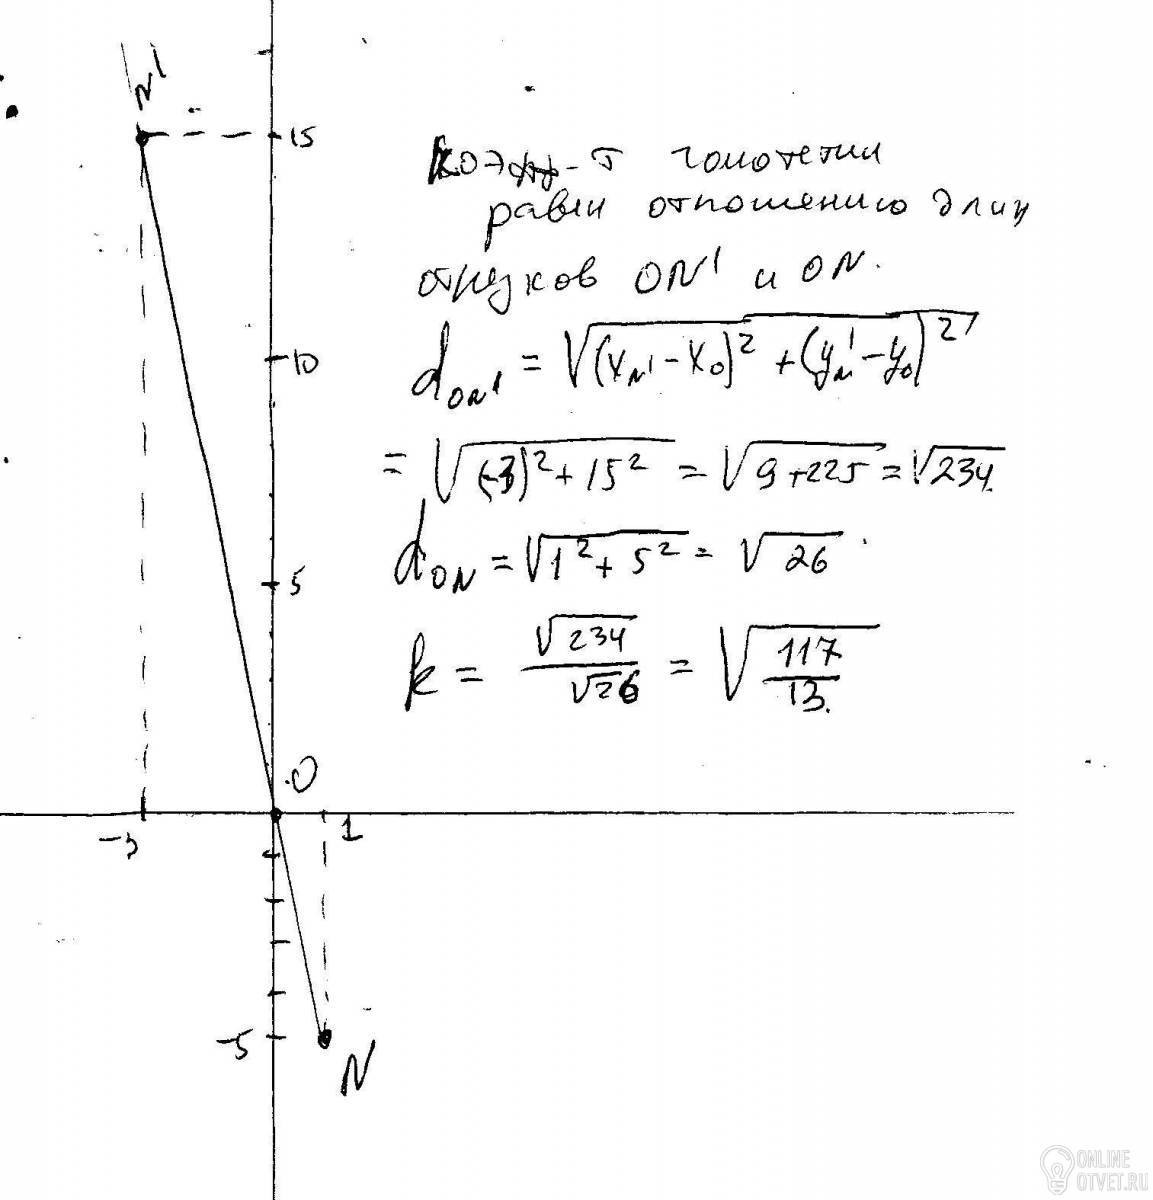 N'
15
Коэфф-т гомотетии
равен отношению длин
отрезков ON' и ON.
d_{ON'} = √((x_{N'} - x_0)² + (y_{N'} - y_0)²)
10
= √((-3)² + 15²) = √(9+225) = √234
d_{ON} = √(1² + 5²) = √26
5
k = √234/√26 = √(117/13)
O
-3
1
-5
N
ONLINE
OTVET.RU